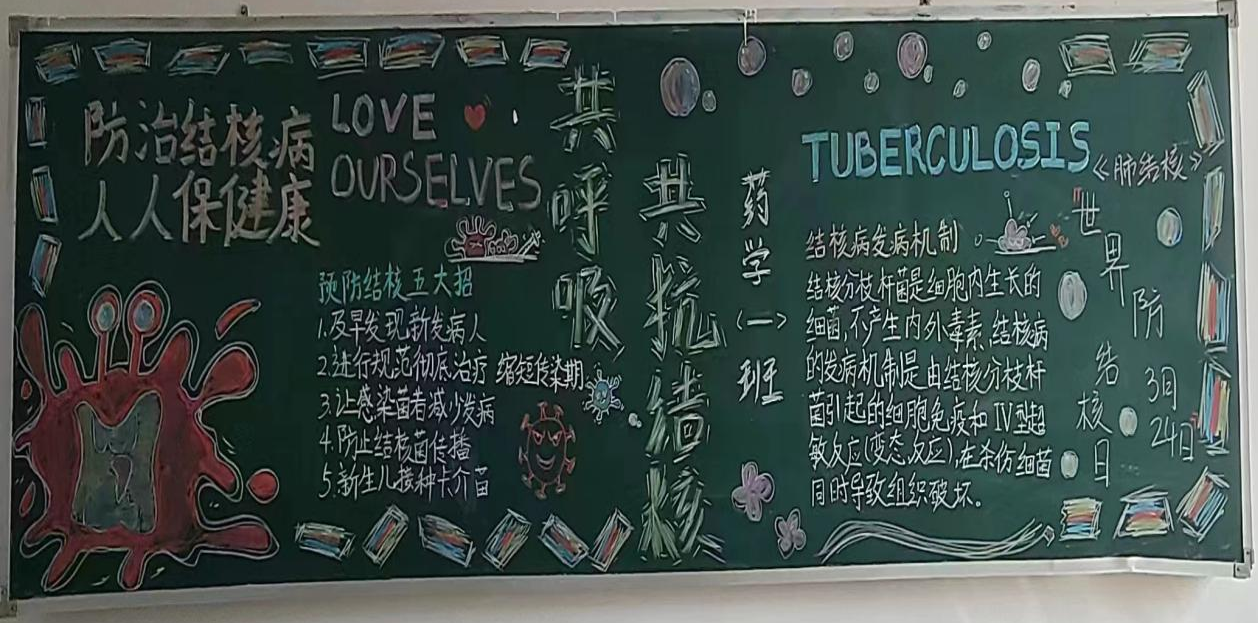 防治结核病
人人保健康
LOVE
OURSELVES
预防结核五大招
1.及早发现新发病人
2.进行规范彻底治疗 缩短传染期
3.让感染菌者减少发病
4.防止结核菌传播
5.新生儿接种卡介苗
共呼吸
共抗结核
药学(一)班
TUBERCULOSIS
《肺结核》
结核病发病机制
结核分枝杆菌是细胞内生长的
细菌,不产生内外毒素,结核病
的发病机制是由结核分枝杆
菌引起的细胞免疫和IV型超
敏反应(变态反应),在杀伤细菌
同时导致组织破坏。
"世界防结核日
3月
24日